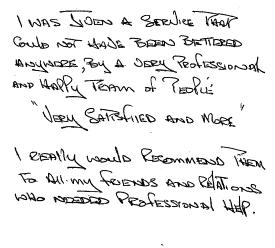 I WAS GIVEN A SERVICE THAT
COULD NOT HAVE BEEN BETTERED
ANYWHERE, BY A VERY PROFESSIONAL
AND HAPPY TEAM OF PEOPLE
"VERY SATISFIIED AND MORE"
I REALLY WOULD RECOMMEND THEM
TO ALL MY FRIENDS AND RELATIONS
WHO NEEDED PROFESSIONAL HELP.